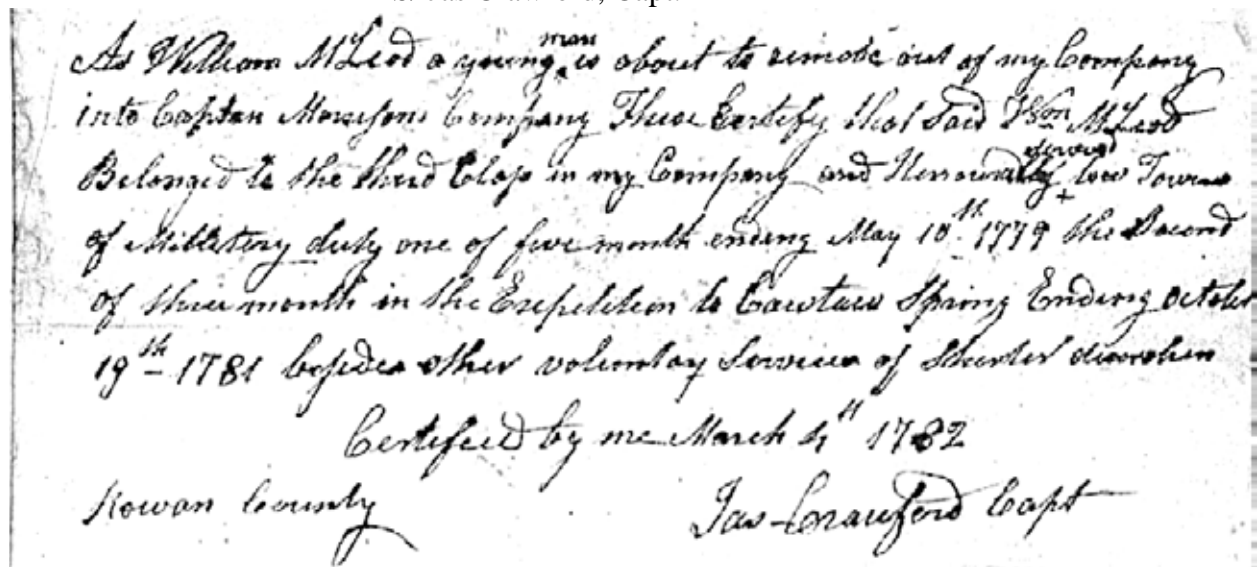 As William McLeod a young man is about to remove out of my Company
into Captan Morrisons Company These Certify that Said Wm McLeod
Belonged to the third Class in my Company and Honourably served tow Towers
of Millitery duty one of five month ending May 10th 1779 the Second
of three month in the Expedition to Cawtaw Spring Ending october
19th 1781 besides other voluntay Services of Shorter duration
Certified by me March 4th 1782
Rowan County Jas Crawford Capt